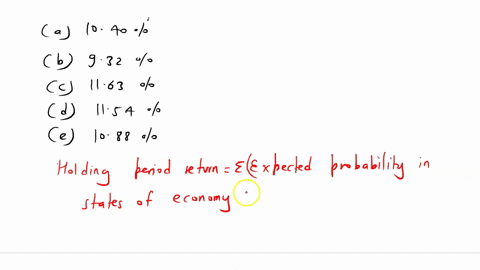 (a) 10.40 %
(b) 9.32 %
(c) 11.63 %
(d) 11.54 %
(e) 10.88 %
Holding period return = Σ(Expected probability in
states of economy